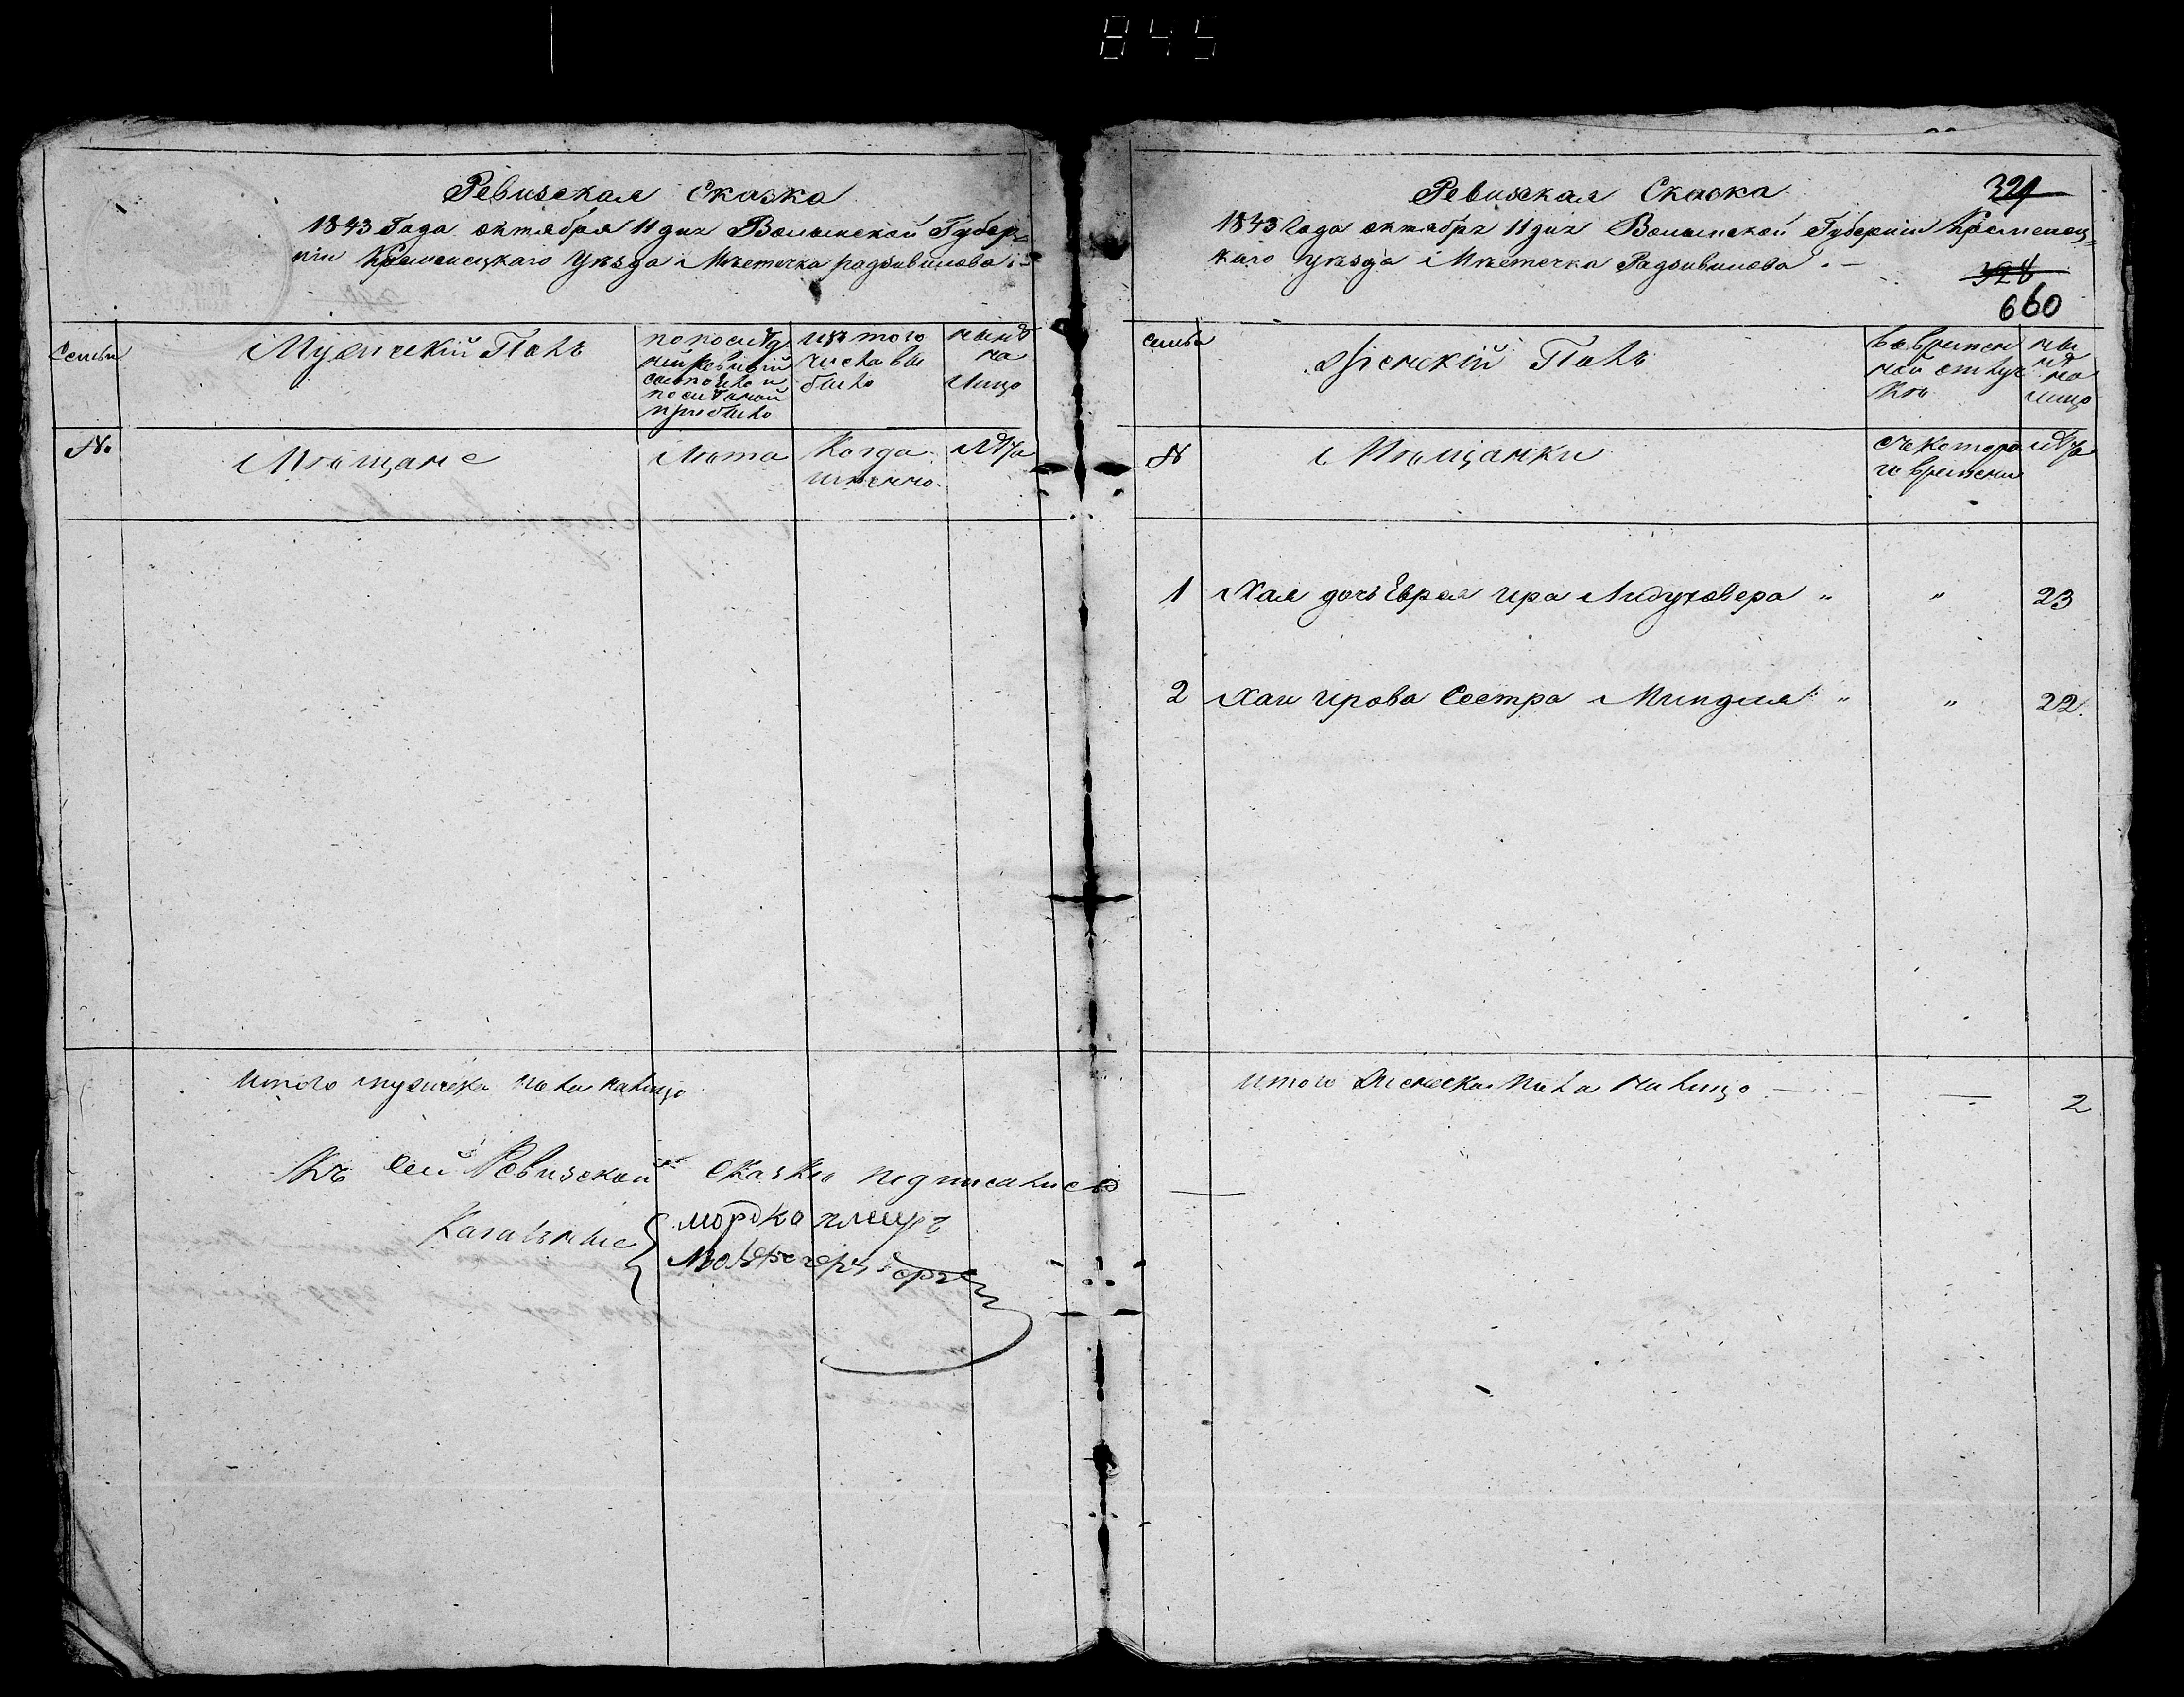 845
Ревизская Сказка
1843 Года октября 11 дня Волынской Губер=
ніи Кременецкаго Уѣзда Мѣстечка радзивилова
Семьи
Мужескій Полъ
по послѣд
ней ревизіи
состояло и
послѣ оной
прибыло
изъ того
числа вы
было
нынѣ
на
лицо
№
Мѣщане
Лѣта
Когда
именно.
Лѣта
Итого мужеска пола налицо
Къ Сей Ревизской сказки подписались
Кагальные
мордко
Ревизская Сказка
329
1843 Года октября 11 дня Волынской Губерніи Кременец=
каго Уѣзда Мѣстечка Радзивилова. —
328
660
семьи
Женскій Полъ
во времен
ной отлуч
кѣ
ны
нѣ
на
лицо
№
Мѣщанки
съ котора
го времени
лѣта
1 Хая дочь Еврея ира Лидуховера " " 23
2 Хаи ирова Сестра Миндля " " 22.
итого женска пола на лицо — — 2